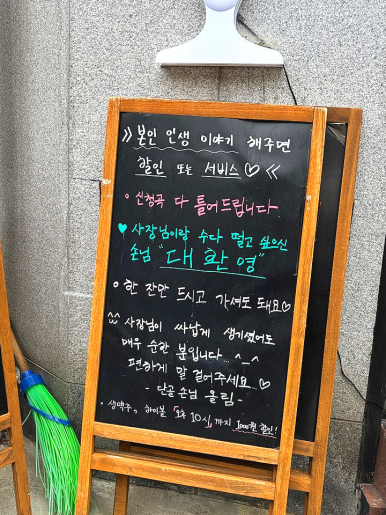 》 본인 인생 이야기 해주면
할인 또는 서비스♡ 《
• 신청곡 다 틀어드립니다.
♥ 사장님이랑 수다 떨고 싶으신
손님 "대 환 영"
• 한 잔만 드시고 가셔도 돼요♡
^^ 사장님이 싸납게 생기셨어도
매우 순한 분입니다... ^_^
편하게 말 걸어주세요..♡
- 단골 손님 올림 -
• 생맥주, 하이볼 "오후 10시" 까지 1000원 할인!